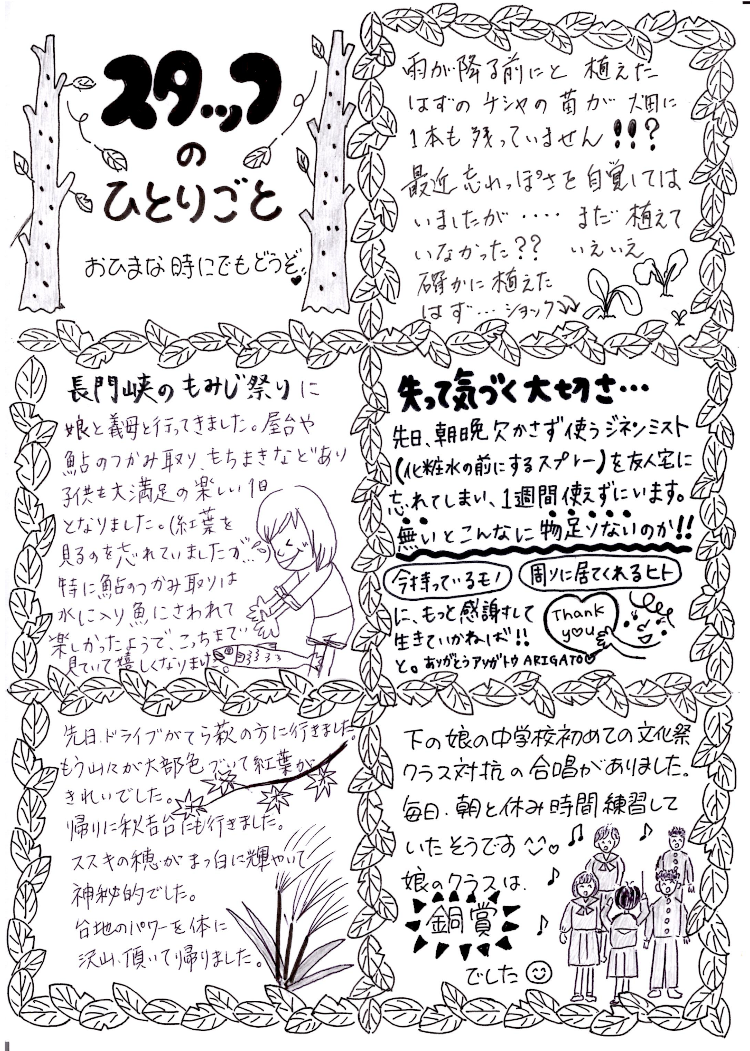 スタッフ
の
ひとりごと
おひまな時にでもどうぞ
雨が降る前にと 植えた
はずのチシャの苗が 畑に
1本も残っていません!!?
最近忘れっぽさを自覚しては
いましたが‥‥ まだ植えて
いなかった?? いえいえ
確かに植えた
はず… ショック
長門峡のもみじ祭りに
娘と義母と行ってきました。屋台や
鮎のつかみ取り、もちまきなどあり
子供も大満足の楽しい1日
となりました。(紅葉を
見るのを忘れていましたが…)
特に鮎のつかみ取りは
水に入り魚にさわれて
楽しかったようで、こっちまで
見ていて嬉しくなりました
失って気づく大切さ…
先日、朝晩欠かさず使うジネンミスト
(化粧水の前にするスプレー)を友人宅に
忘れてしまい、1週間使えずにいます。
無いとこんなに物足りないのか!!
今持っているモノ 周りに居てくれるヒト
に、もっと感謝して
生きていかねば!!
と。ありがとうアリガトウ ARIGATO
Thank
you
先日、ドライブがてら萩の方に行きました。
もう山々が大部色づいて紅葉が
きれいでした。
帰りに秋吉台にも行きました。
ススキの穂がまっ白に輝やいて
神秘的でした。
台地のパワーを体に
沢山、頂いて帰りました。
下の娘の中学校初めての文化祭
クラス対抗の合唱がありました。
毎日、朝と休み時間練習して
いたそうです
娘のクラスは、
銅賞
でした